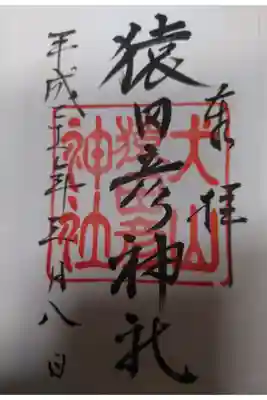 奉拝
猿田彦神社
平成年月八日
犬山
猿田彦
神社